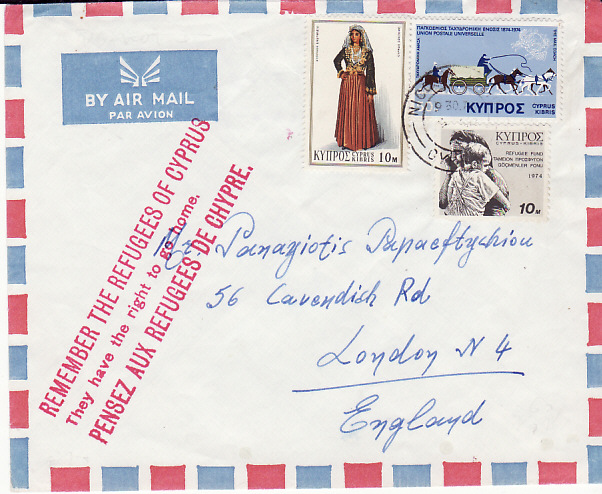 BY AIR MAIL
PAR AVION
ΚΥΠΡΟΣ CYPRUS KIBRIS 10 M
ΠΑΓΚΟΣΜΙΟΣ ΤΑΧΥΔΡΟΜΙΚΗ ΕΝΩΣΙΣ 1874-1974
UNION POSTALE UNIVERSELLE
ΚΥΠΡΟΣ
CYPRUS
KIBRIS
ΚΥΠΡΟΣ
CYPRUS-KIBRIS
REFUGEE FUND
ΤΑΜΕΙΟΝ ΠΡΟΣΦΥΓΩΝ
GÖÇMENLER FONU
1974
10 M
REMEMBER THE REFUGEES OF CYPRUS
They have the right to go home.
PENSEZ AUX REFUGIEES DE CHYPRE.
Mr. Panagiotis Papaeftychiou
56 Cavendish Rd
London N 4
England